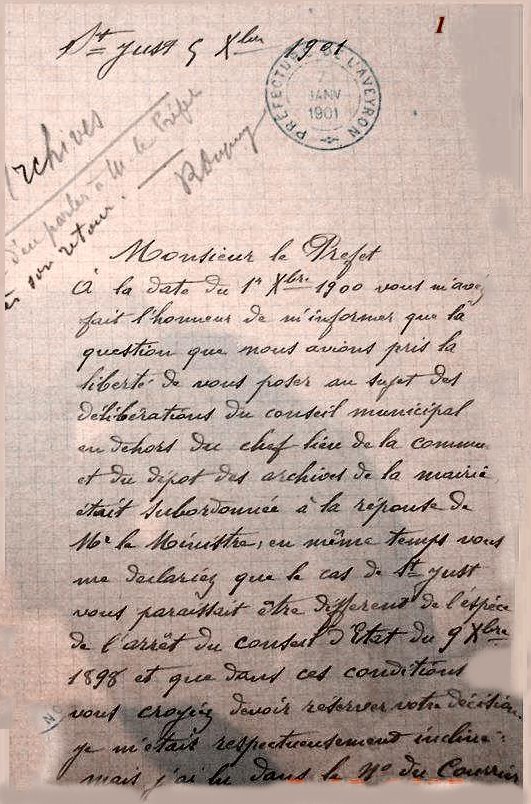 1
St Just 5 Xbre 1901
PREFECTURE DE L'AVEYRON
7
JANV
1901
Archives
d'en parler à M. le Préfet
à son retour.
Monsieur le Prefet
A la date du 1er Xbre 1900 vous m'avez
fait l'honneur de m'informer que la
question que nous avions pris la
liberté de vous poser au sujet des
délibérations du conseil municipal
en dehors du chef lieu de la commune
et du dépot des archives de la mairie
était subordonnée à la réponse de
Mr le Ministre, en même temps vous
me declariez que le cas de St Just
vous paraissait être different de l'espèce
de l'arrêt du conseil d'Etat du 9 Xbre
1898 et que dans ces conditions
vous croyiez devoir réserver votre décision
je m'étais respectueusement incliné
mais j'ai lu dans le No du Courrier